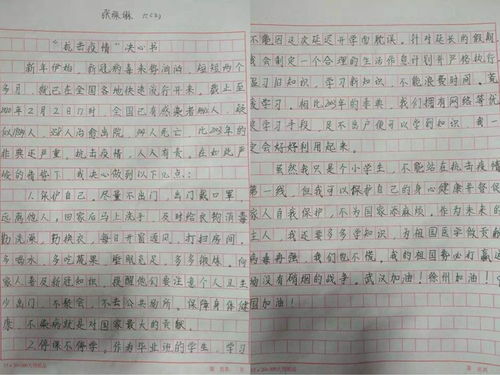 六(3)
"抗击疫情"决心书
新年伊始，新冠病毒来势汹汹，短短两个
多月，就已在全国各地快速流行开来。截止至
2020年2月2日17时，全国已有感染者 人，疑
似 人， 人治愈出院， 人死亡，比2003年的
非典还严重，抗击疫情，人人有责。在如此严
峻的情势下，我决心做到以下几点：
1.保护自己。尽量不出门，出门戴口罩，
远离他人，回家后马上洗手，及时给衣物消毒
勤洗澡，勤换衣，每日开窗通风，打扫房间。
多喝水，多吃蔬果，睡眠充足，多多锻炼。向
家人普及新冠知识，提醒他们要注意个人卫生
少出门，不聚会，不去公共场所。保障身体健
康，不染病就是对国家最大的贡献。
2.停课不停学。作为毕业班的学生，学习
不能因这次延迟开学而耽误。针对延长的假期
我会制定一个合理的生活作息计划并严格执行
复习旧知识，学习新知识，不能浪费时间。荒
废学习。相比2003年的非典，我们拥有网络等优
良学习手段，足不出户便可以学到知识，我一
定会好好利用起来。
虽然我只是个小学生，不能站在抗击疫情
第一线，但我可以保护自己的身心健康并督促
家人自我保护，不为国家添麻烦。作为未来的
主人，我还要多多学知识，为祖国医学做贡献
病毒再强，我们也不慌。我的祖国势必打赢这
场没有硝烟的战争。武汉加油！徐州加油！中
国加油！